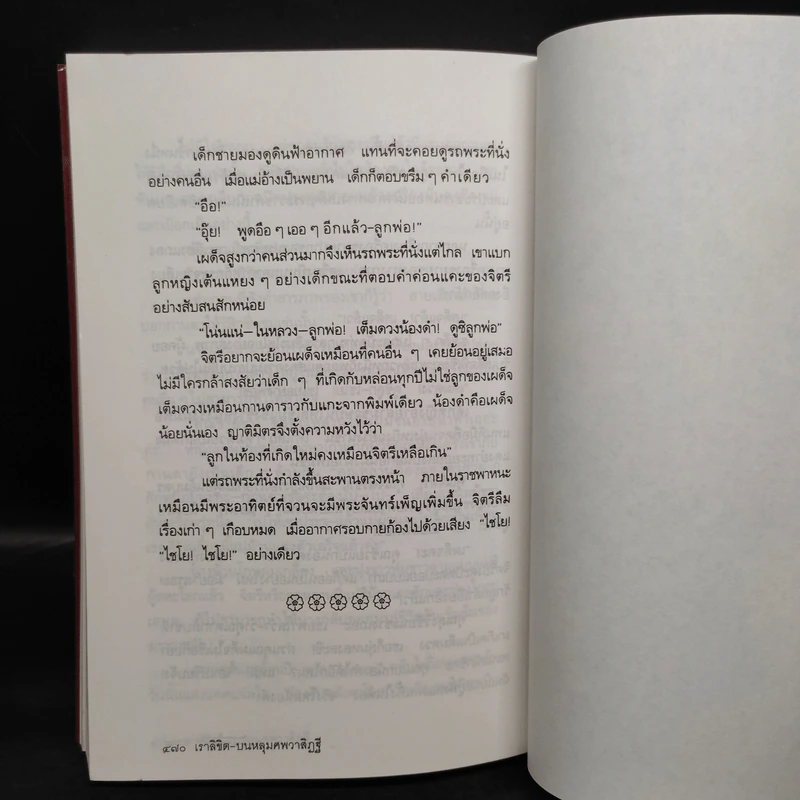 เด็กชายมองดูดินฟ้าอากาศ แทนที่จะคอยดูรถพระที่นั่ง
อย่างคนอื่น เมื่อแม่อ้างเป็นพยาน เด็กก็ตอบขรึม ๆ คำเดียว
“อือ!”
“อุ๊ย! พูดอือ ๆ เออ ๆ อีกแล้ว-ลูกพ่อ!”
เผด็จสูงกว่าคนส่วนมากจึงเห็นรถพระที่นั่งแต่ไกล เขาแบก
ลูกหญิงเต้นแหยง ๆ อย่างเด็กขณะที่ตอบคำค่อนแคะของจิตรี
อย่างสับสนสักหน่อย
“โน่นแน่-ในหลวง-ลูกพ่อ! เต็มดวงน้องดำ! ดูซิลูกพ่อ”
จิตรีอยากจะย้อนเผด็จเหมือนที่คนอื่น ๆ เคยย้อนอยู่เสมอ
ไม่มีใครกล้าสงสัยว่าเด็ก ๆ ที่เกิดกับหล่อนทุกปีไม่ใช่ลูกของเผด็จ
เต็มดวงเหมือนกานดาราวกับแกะจากพิมพ์เดียว น้องดำคือเผด็จ
น้อยนั่นเอง ญาติมิตรจึงตั้งความหวังไว้ว่า
“ลูกในท้องที่เกิดใหม่คงเหมือนจิตรีเหลือเกิน”
แต่รถพระที่นั่งกำลังขึ้นสะพานตรงหน้า ภายในราชพาหนะ
เหมือนมีพระอาทิตย์ที่จวนจะมีพระจันทร์เพ็ญเพิ่มขึ้น จิตรีลืม
เรื่องเก่า ๆ เกือบหมด เมื่ออากาศรอบกายก้องไปด้วยเสียง “ไชโย!
“ไชโย! ไชโย!” อย่างเดียว
๔๗๐ เราลิขิต-บนหลุมศพวาสิฏฐี